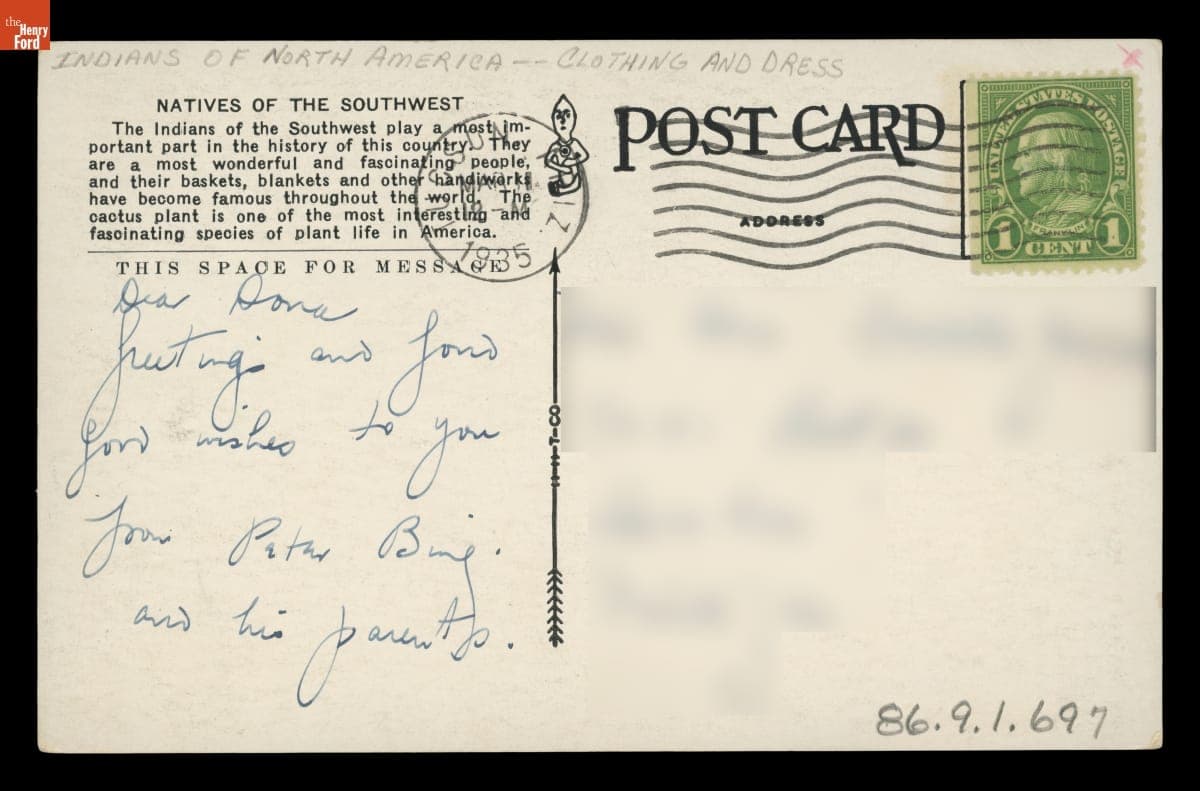 the
Henry
Ford
INDIANS OF NORTH AMERICA -- CLOTHING AND DRESS
NATIVES OF THE SOUTHWEST
The Indians of the Southwest play a most im-
portant part in the history of this country. They
are a most wonderful and fascinating people,
and their baskets, blankets and other handiworks
have become famous throughout the world. The
cactus plant is one of the most interesting and
fascinating species of plant life in America.
THIS SPACE FOR MESSAGE
Dear Dona
Greetings and good
good wishes to you
from Peter Bing.
and his parents.
1935
POST CARD
ADDRESS
UNITED STATES POSTAGE
FRANKLIN
1 CENT 1
86.9.1.697